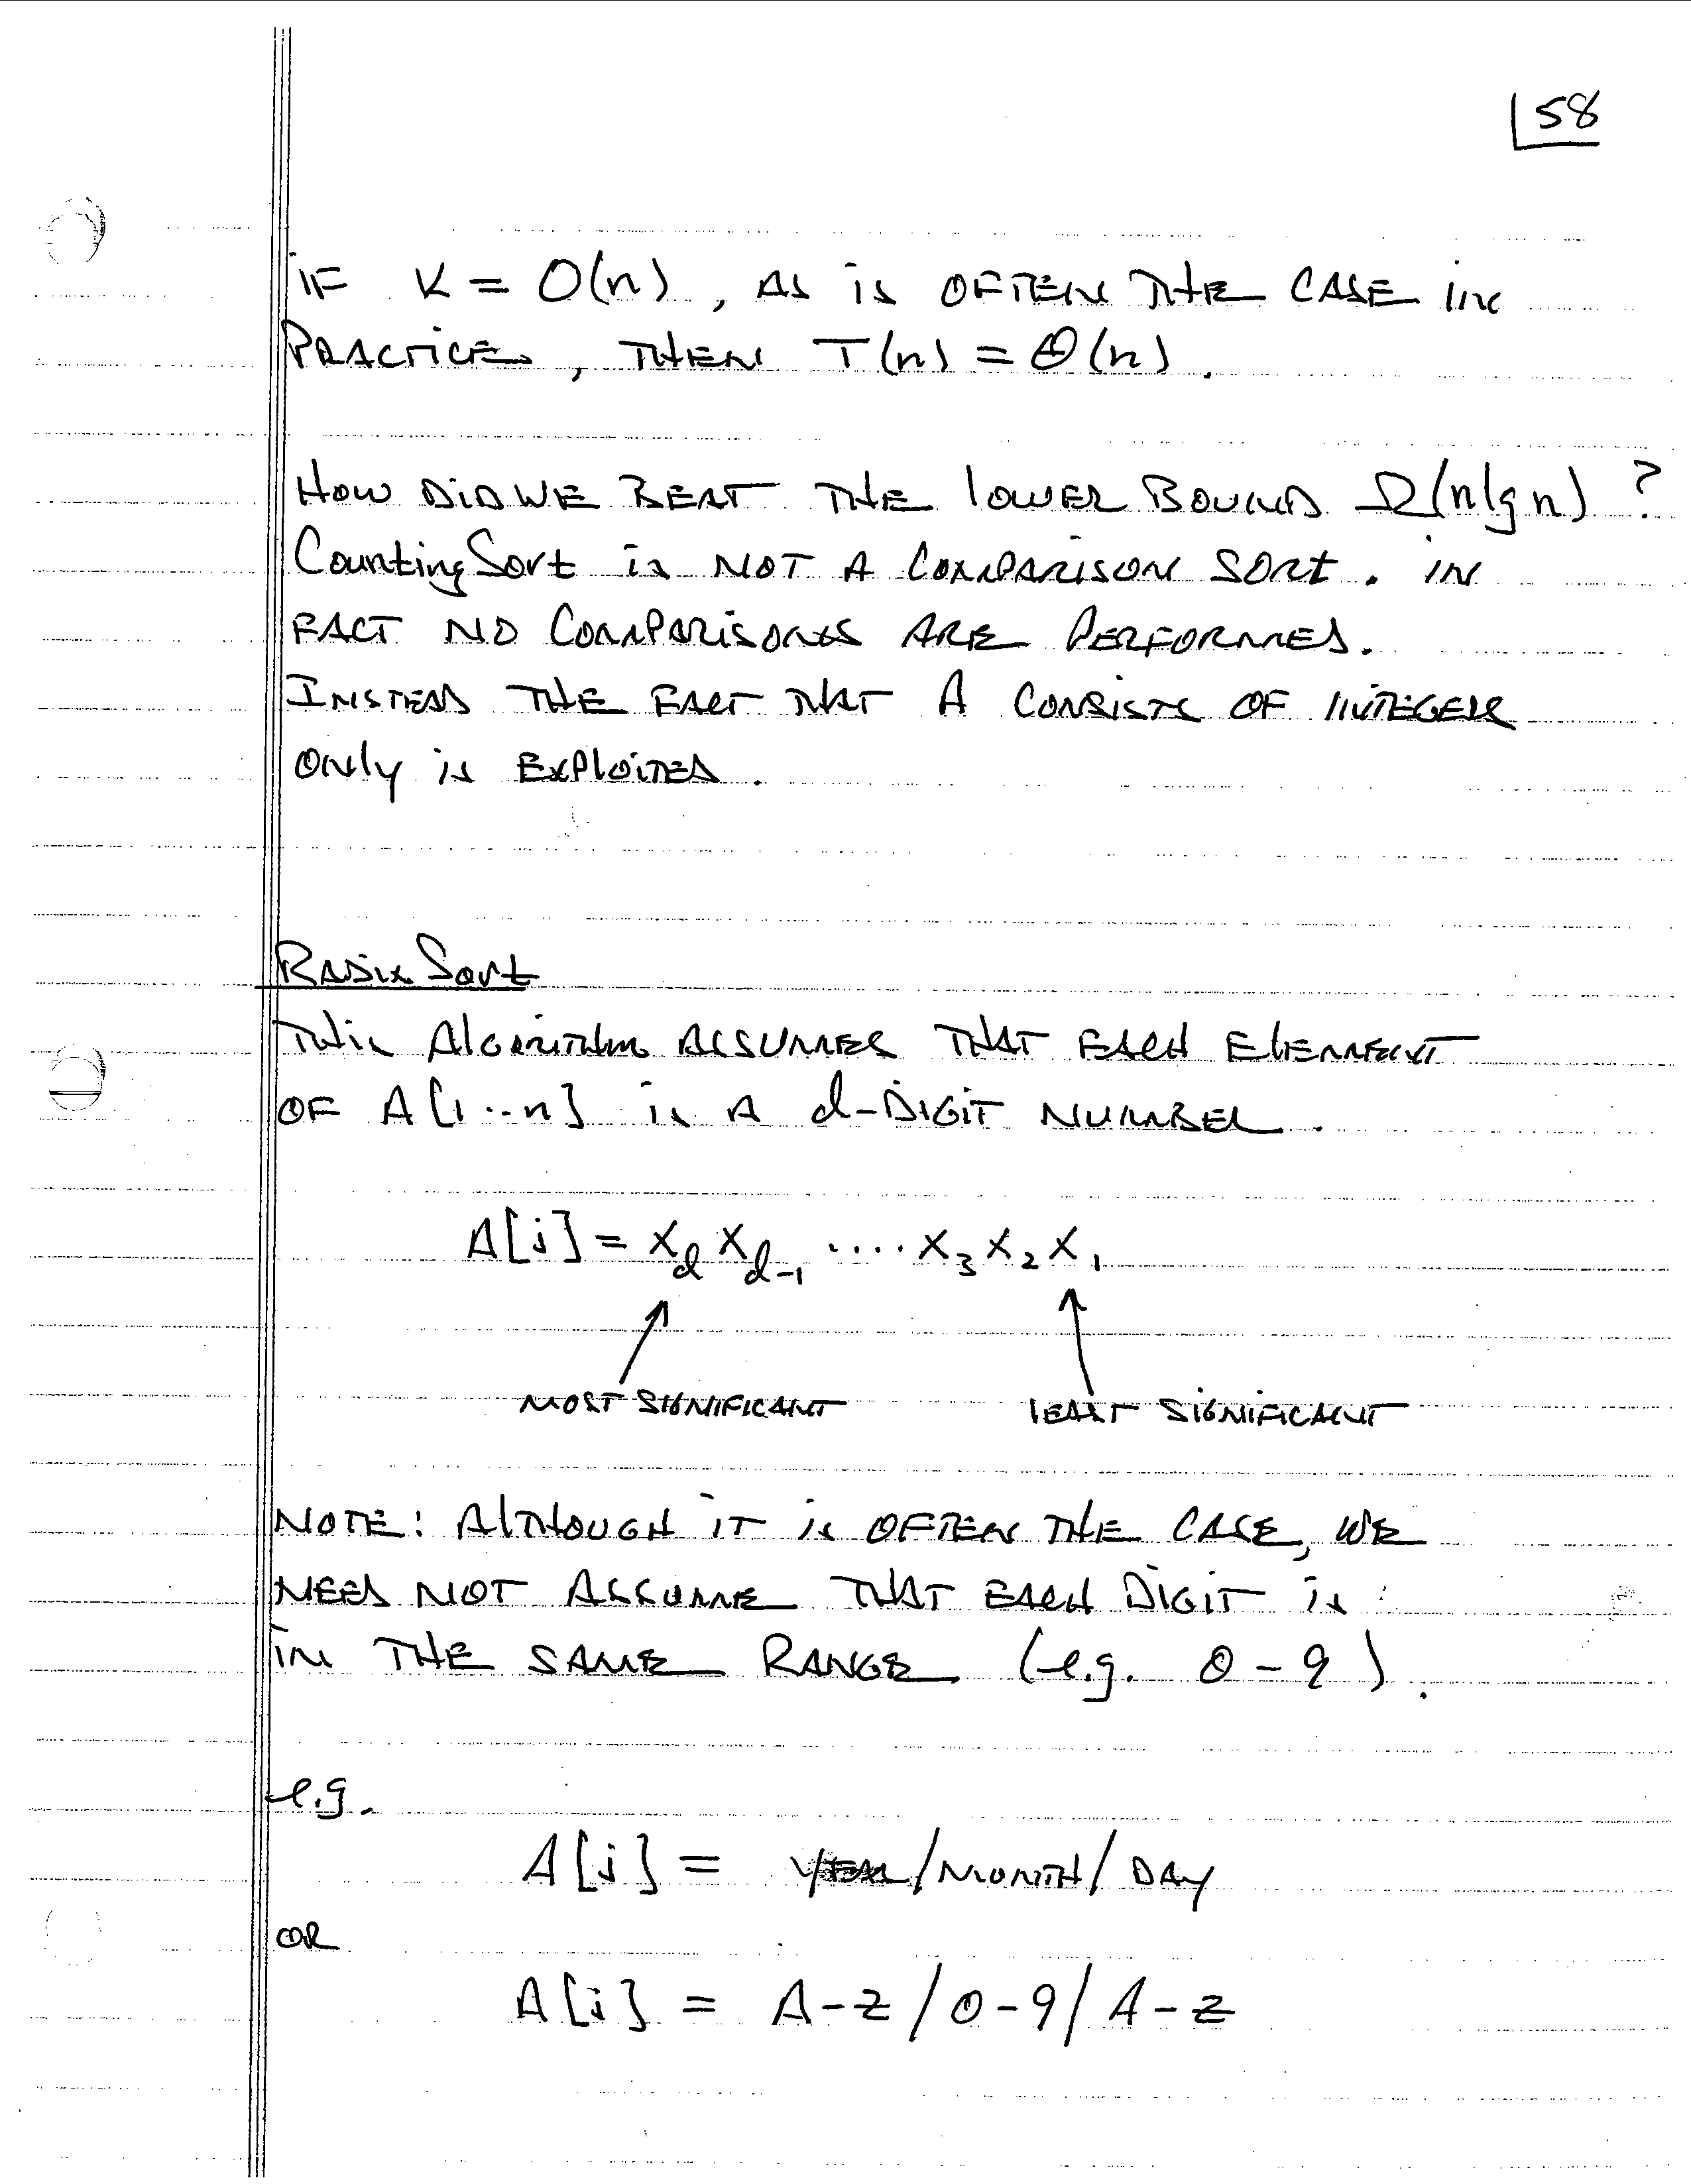 58
IF K = O(n), AS IS OFTEN THE CASE IN
PRACTICE, THEN T(n) = Θ(n).
HOW DID WE BEAT THE LOWER BOUND Ω(n lg n) ?
Counting Sort IS NOT A COMPARISON SORT. IN
FACT NO COMPARISONS ARE PERFORMED.
INSTEAD THE FACT THAT A CONSISTS OF INTEGERS
ONLY IS EXPLOITED.
RADIX Sort
THIS ALGORITHM ASSUMES THAT EACH ELEMENT
OF A[1··n] IS A d-DIGIT NUMBER.
A[j] = x_d x_{d-1} ···· x_3 x_2 x_1
MOST SIGNIFICANT LEAST SIGNIFICANT
NOTE: ALTHOUGH IT IS OFTEN THE CASE, WE
NEED NOT ASSUME THAT EACH DIGIT IS
IN THE SAME RANGE (e.g. 0-9).
e.g.
A[j] = YEAR/MONTH/DAY
OR
A[j] = A-Z/0-9/A-Z